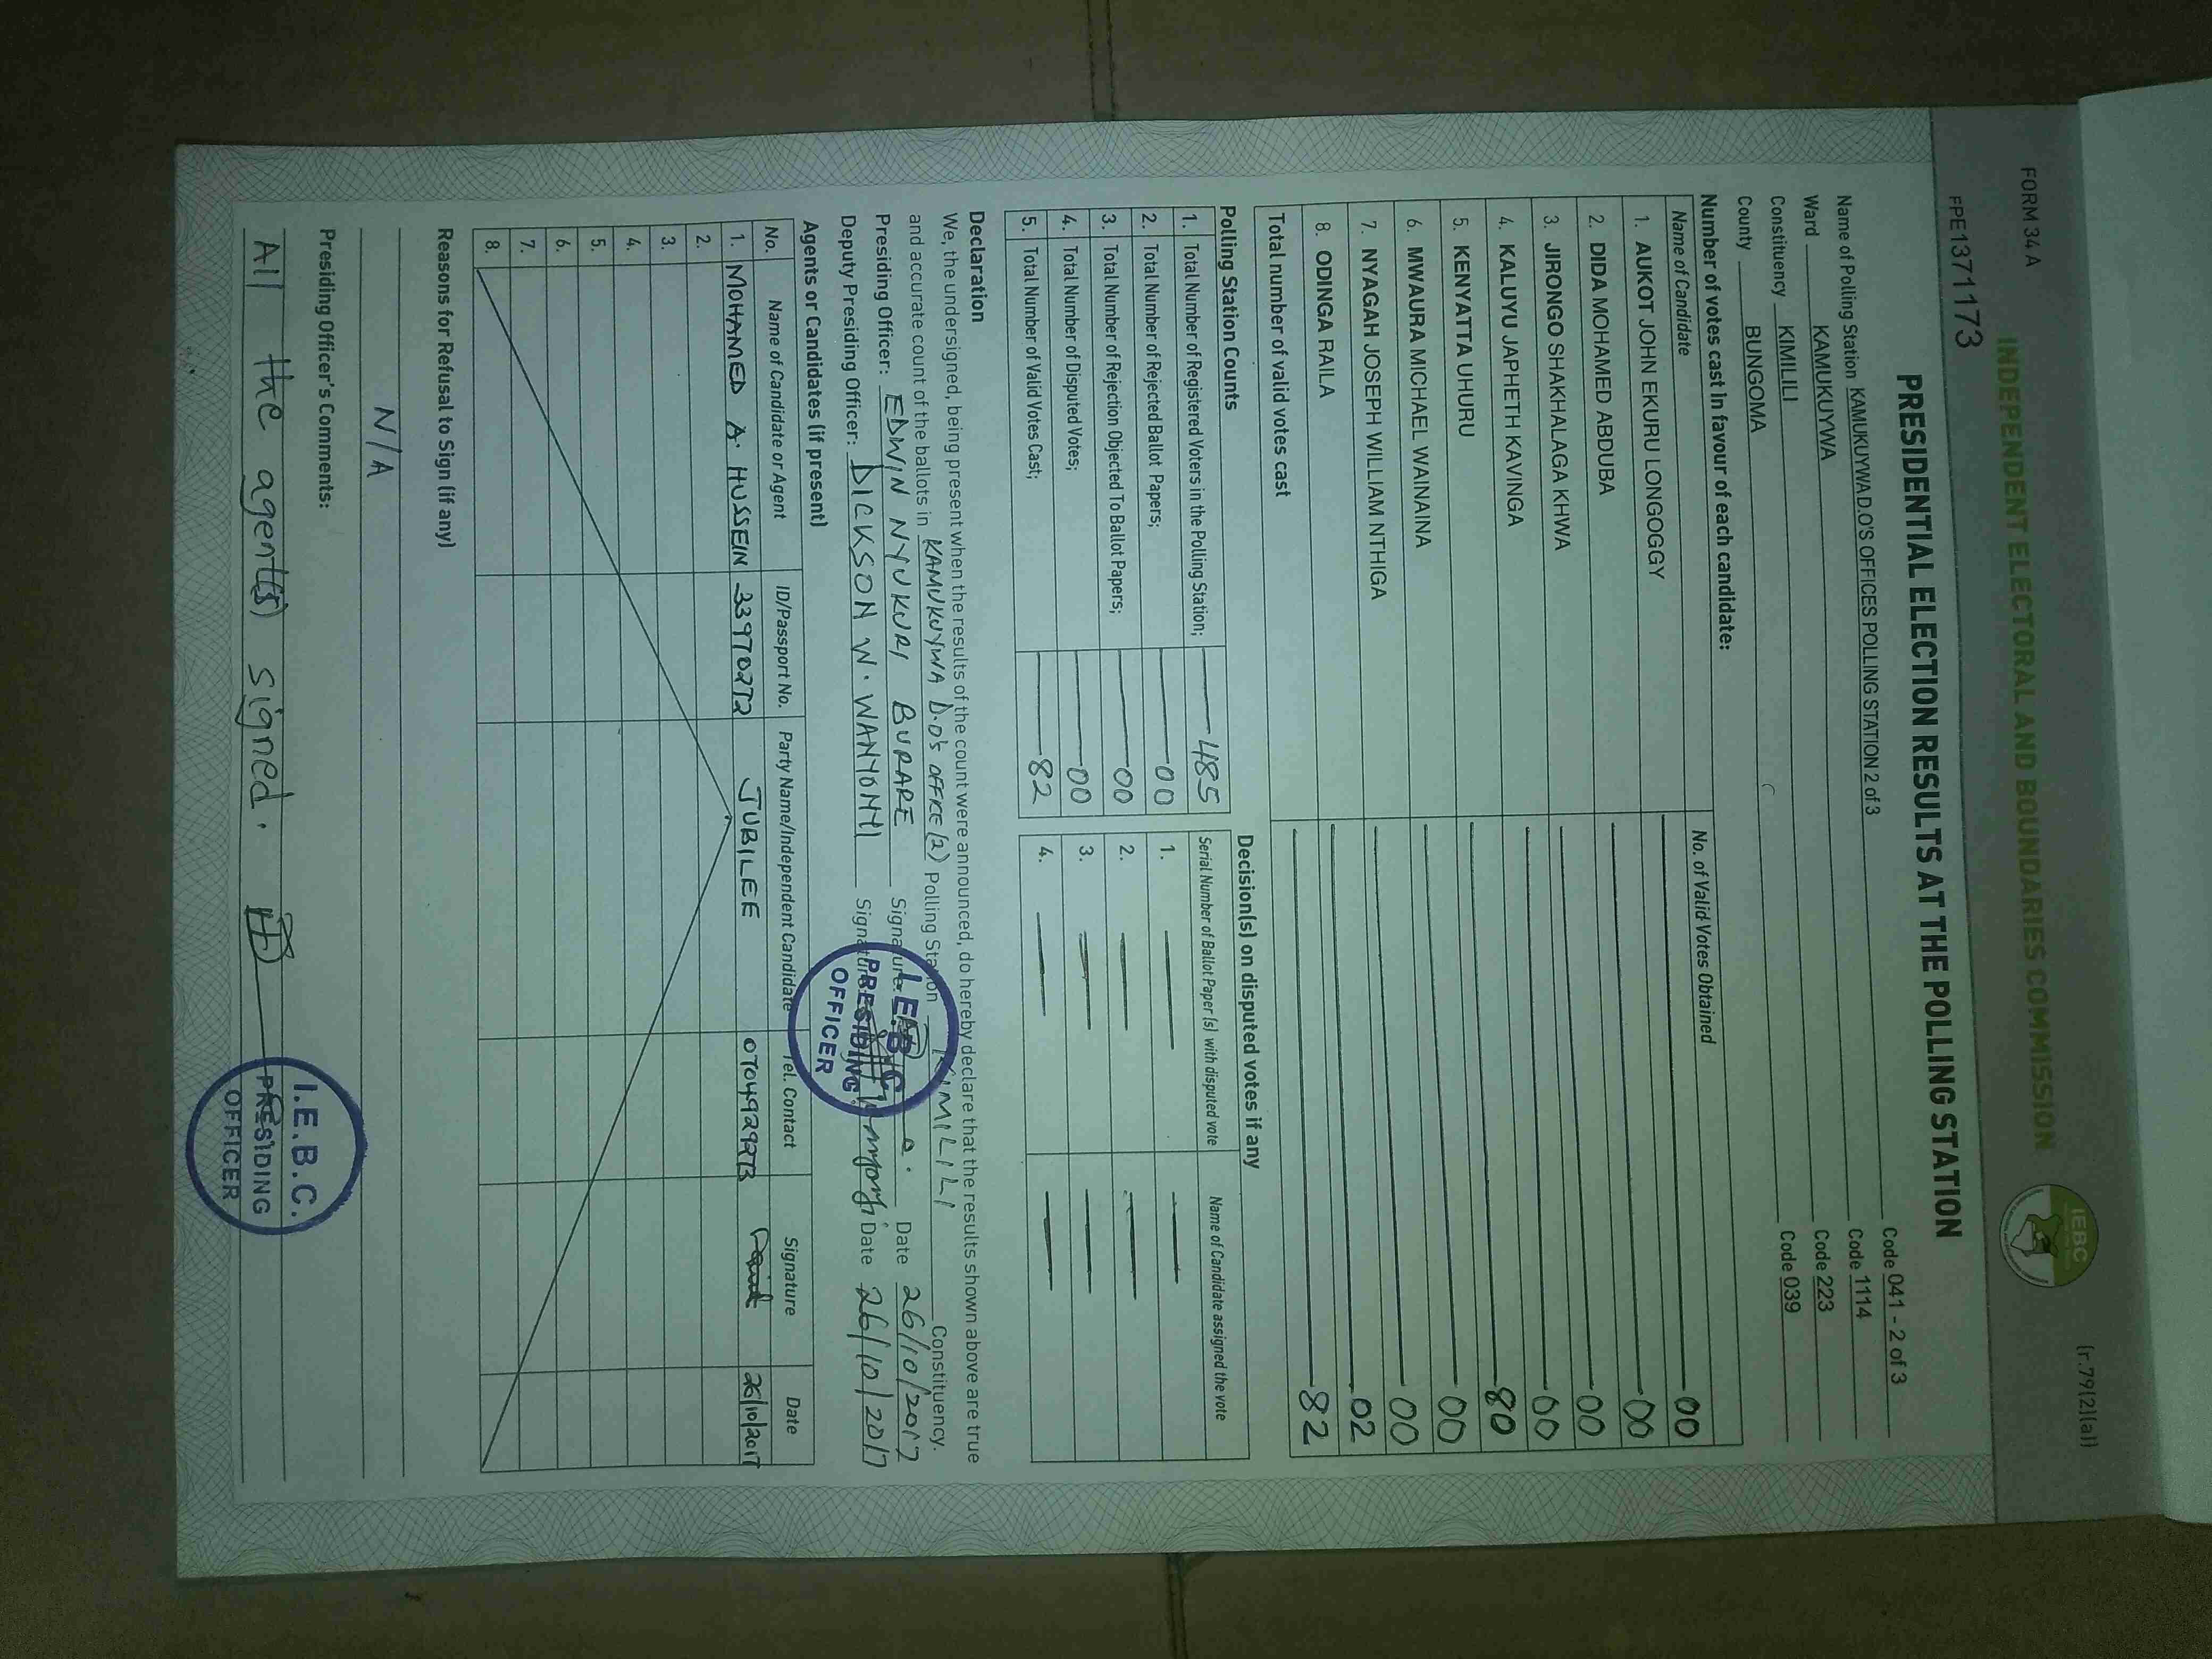 FORM 34 A
(r.79(2)(a))
INDEPENDENT ELECTORAL AND BOUNDARIES COMMISSION
IEBC
FPE1371173
PRESIDENTIAL ELECTION RESULTS AT THE POLLING STATION
Name of Polling Station KAMUKUYWA D.O'S OFFICES POLLING STATION 2 of 3 Code 041 - 2 of 3
Ward KAMUKUYWA Code 1114
Constituency KIMILILI Code 223
County BUNGOMA Code 039
Number of votes cast in favour of each candidate:
Name of Candidate No. of Valid Votes Obtained
1. AUKOT JOHN EKURU LONGOGGY 00
2. DIDA MOHAMED ABDUBA 00
3. JIRONGO SHAKHALAGA KHWA 00
4. KALUYU JAPHETH KAVINGA 00
5. KENYATTA UHURU 80
6. MWAURA MICHAEL WAINAINA 00
7. NYAGAH JOSEPH WILLIAM NTHIGA 00
8. ODINGA RAILA 02
Total number of valid votes cast 82
Polling Station Counts
1. Total Number of Registered Voters in the Polling Station; 485
2. Total Number of Rejected Ballot Papers; 00
3. Total Number of Rejection Objected To Ballot Papers; 00
4. Total Number of Disputed Votes; 00
5. Total Number of Valid Votes Cast; 82
Decision(s) on disputed votes if any
Serial Number of Ballot Paper (s) with disputed vote Name of Candidate assigned the vote
1.
2.
3.
4.
Declaration
We, the undersigned, being present when the results of the count were announced, do hereby declare that the results shown above are true
and accurate count of the ballots in KAMUKUYWA D.O's OFFICE (2) Polling Station KIMILILI Constituency.
Presiding Officer: EDWIN NYUKURI BURARE Signature Date 26/10/2017
Deputy Presiding Officer: DICKSON W. WANYONYI Signature Date 26/10/2017
I.E.B.C.
PRESIDING
OFFICER
Agents or Candidates (if present)
No. Name of Candidate or Agent ID/Passport No. Party Name/Independent Candidate Tel. Contact Signature Date
1. MOHAMED A. HUSSEIN 33970272 JUBILEE 0704929973 26/10/2017
2.
3.
4.
5.
6.
7.
8.
Reasons for Refusal to Sign (if any)
N/A
Presiding Officer's Comments:
All the agent(s) signed.
I.E.B.C.
PRESIDING
OFFICER